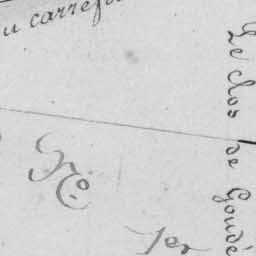 u carref
Le clos de Gondé
N°.
1er